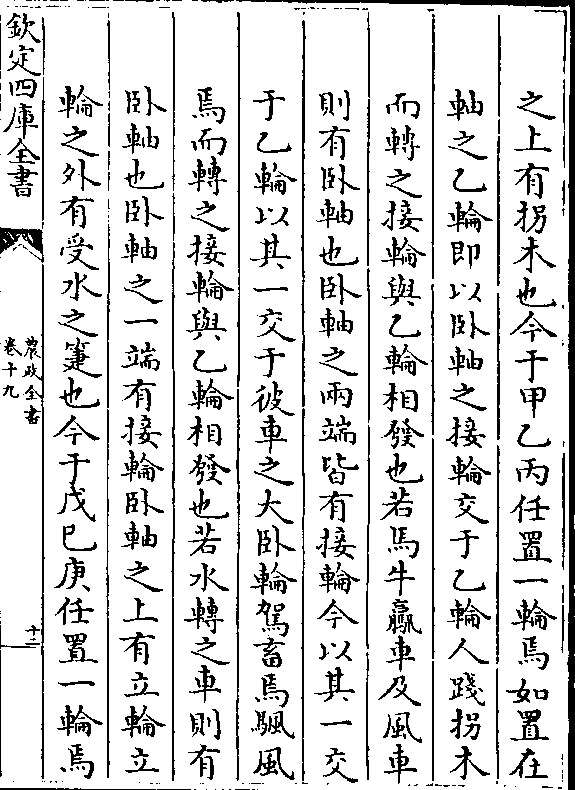 之上有拐木也今于甲乙丙任置一輪焉如置在
軸之乙輪即以卧軸之接輪交于乙輪人踐拐木
而轉之接輪與乙輪相發也若馬牛驘車及風車
則有卧軸也卧軸之兩端皆有接輪今以其一交
于乙輪以其一交于彼車之大卧輪駕畜焉颿風
焉而轉之接輪與乙輪相發也若水轉之車則有
卧軸也卧軸之一端有接輪卧軸之上有立輪立
輪之外有受水之箑也今于戊巳庚任置一輪焉
欽定四庫全書
農政全書
卷十九
十三